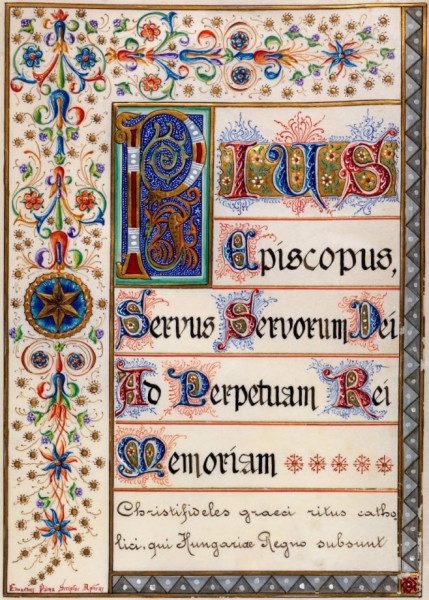 PIUS
Episcopus,
Servus Servorum Dei
Ad Perpetuam Rei
Memoriam
Christifideles graeci ritus catho-
lici, qui Hungariæ Regno subsunt